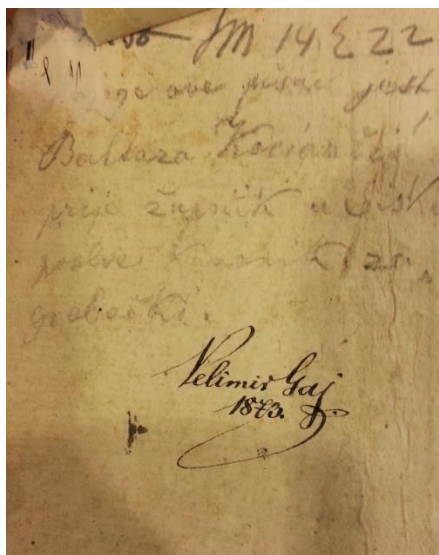 SM 14 E 22
ove pisac jest
Baltazar
prije župnik u
poslve kanonik za
grebački.
Velimir Gaj
1873.